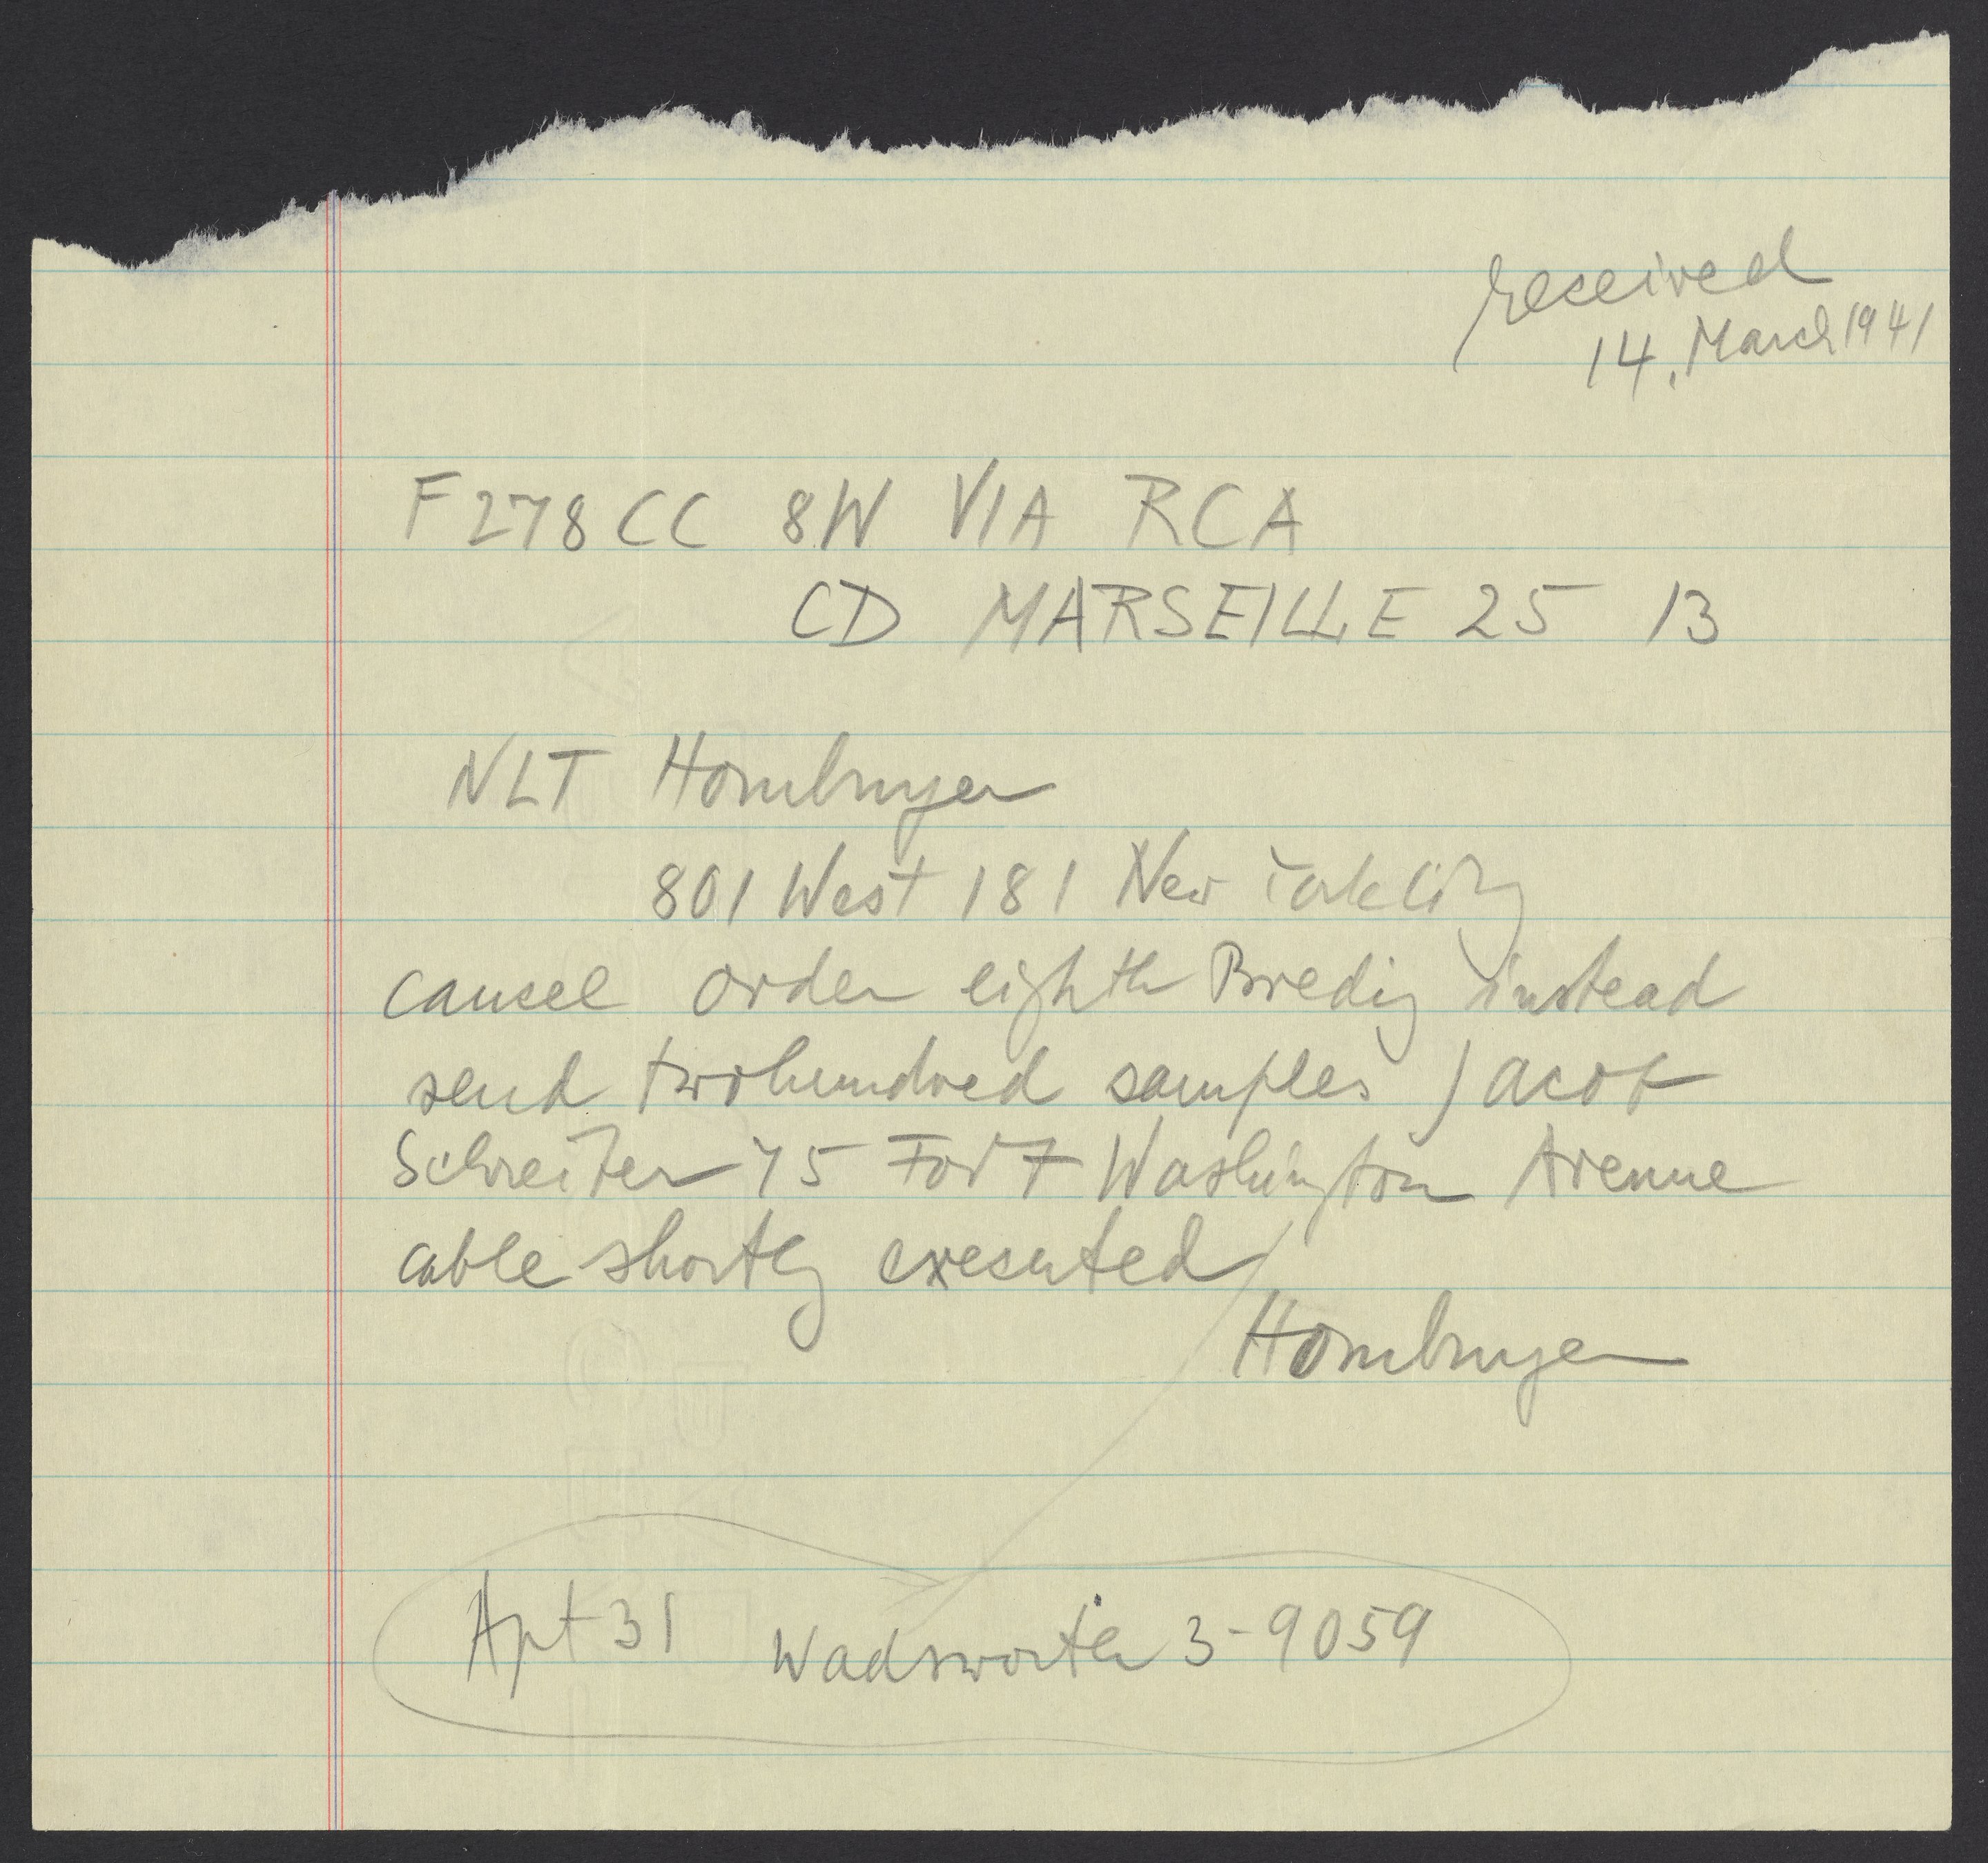 received
14. March 1941
F278CC 8W VIA RCA
CD MARSEILLE 25 13
NLT Homburger
801 West 181 New York City
cancel order eighth Bredig instead
send twohundred samples Jacob
Schreiter 75 Fort Washington Avenue
cable shortly executed
Homburger
Apt 31 Wadsworth 3-9059